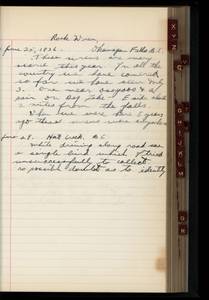 Rock Wren
June 25, 1936. Okanagan Falls B.C.
These wrens are very
scarce this year. In all the
country we have covered
so far we have seen only
3. One near Osoyoos & a
pair on Dog Lake - E side about
2 miles from the falls.
When we were here 8 years
ago these wrens were
June 29. B.C.
While driving along road saw
a single bird which I tried
unsuccessfully to collect.
no possible doubt as to identity
X
Y
Z
G
H
I
J
K
L
M